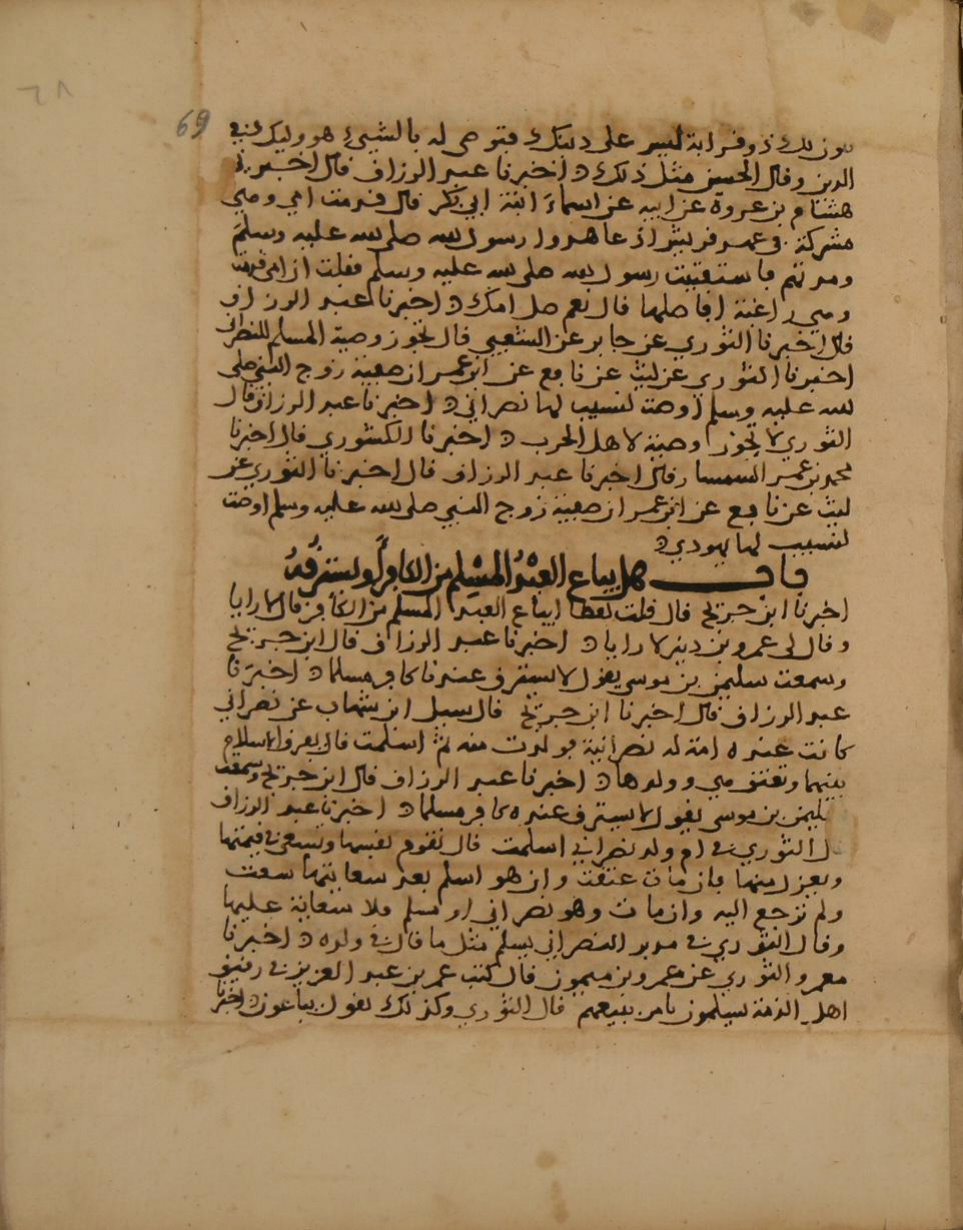 69
يكون لك ذو قرابة ليس على دينك فتوصي له بالشيء هو وليك في
الدين وقال الحسن مثل ذلك ه اخبرنا عبد الرزاق قال اخبرني
هشام بن عروة عن ابيه عن اسماء ابنة ابي بكر قال قدمت امي وهي
مشركة في عهد قريش اذ عاهدوا رسول الله صلى الله عليه وسلم
ومدتهم فاستفتيت رسول الله صلى الله عليه وسلم فقلت ان امي قدمت
وهي راغبة افاصلها قال نعم صلي امك ه اخبرنا عبد الرزاق
قال اخبرنا الثوري عن جابر عن الشعبي قال تجوز وصية المسلم للنصراني
اخبرنا الثوري عن ليث عن نافع عن ابن عمر ان صفية زوج النبي صلى
الله عليه وسلم اوصت لنسيب لها نصراني ه اخبرنا عبد الرزاق قال
الثوري لا تجوز وصية لاهل الحرب ه اخبرنا الكشوري قال اخبرنا
محمد بن عمر السمسار قال اخبرنا عبد الرزاق قال اخبرنا الثوري عن
ليث عن نافع عن ابن عمر ان صفية زوج النبي صلى الله عليه وسلم اوصت
لنسيب لها يهودي ه
باب هل يباع العبد المسلم من الكافر او يسترقه
اخبرنا ابن جريج قال قلت لعطا ايباع العبد المسلم من الكافر قال لا رايا
وقال لي عمرو بن دينر لا رايا ه اخبرنا عبد الرزاق قال ابن جريج
وسمعت سليمن بن موسى يقول لا يسترق عندنا كافر مسلما ه اخبرنا
عبد الرزاق قال اخبرنا ابن جريج قال سيل ابن شهاب عن نصراني
كانت عنده امة له نصرانية فولدت منه ثم اسلمت قال يفرق الاسلام
بينهما وتعتق هي وولدها ه اخبرنا عبد الرزاق قال ابن جريج وسمعت
سليمن بن موسى يقول لا يسترق عنده كافر مسلما ه اخبرنا عبد الرزاق
قال الثوري في ام ولد نصراني اسلمت قال تقوم نفسها وتسعى في قيمتها
ويعزل منها فان مات عتقت وان هو اسلم بعد سعايتها سعت
ولم ترجع اليه وان مات وهو نصراني او مسلم فلا سعاية عليها
وقال الثوري في مدبر النصراني يسلم مثل ما قال في ولده ه اخبرنا
معمر والثوري عن عمرو بن ميمون قال كتب عمر بن عبد العزيز في رقيق
اهل الذمة يسلمون يامر ببيعهم قال الثوري وكذلك نقول يباعون ه اخبرنا